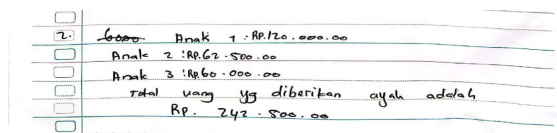 2. 6000 Anak 1 : RP.120.000.00
Anak 2 : RP.62.500.00
Anak 3 : RP.60.000.00
Total uang yg diberikan ayah adalah
RP. 242.500.00